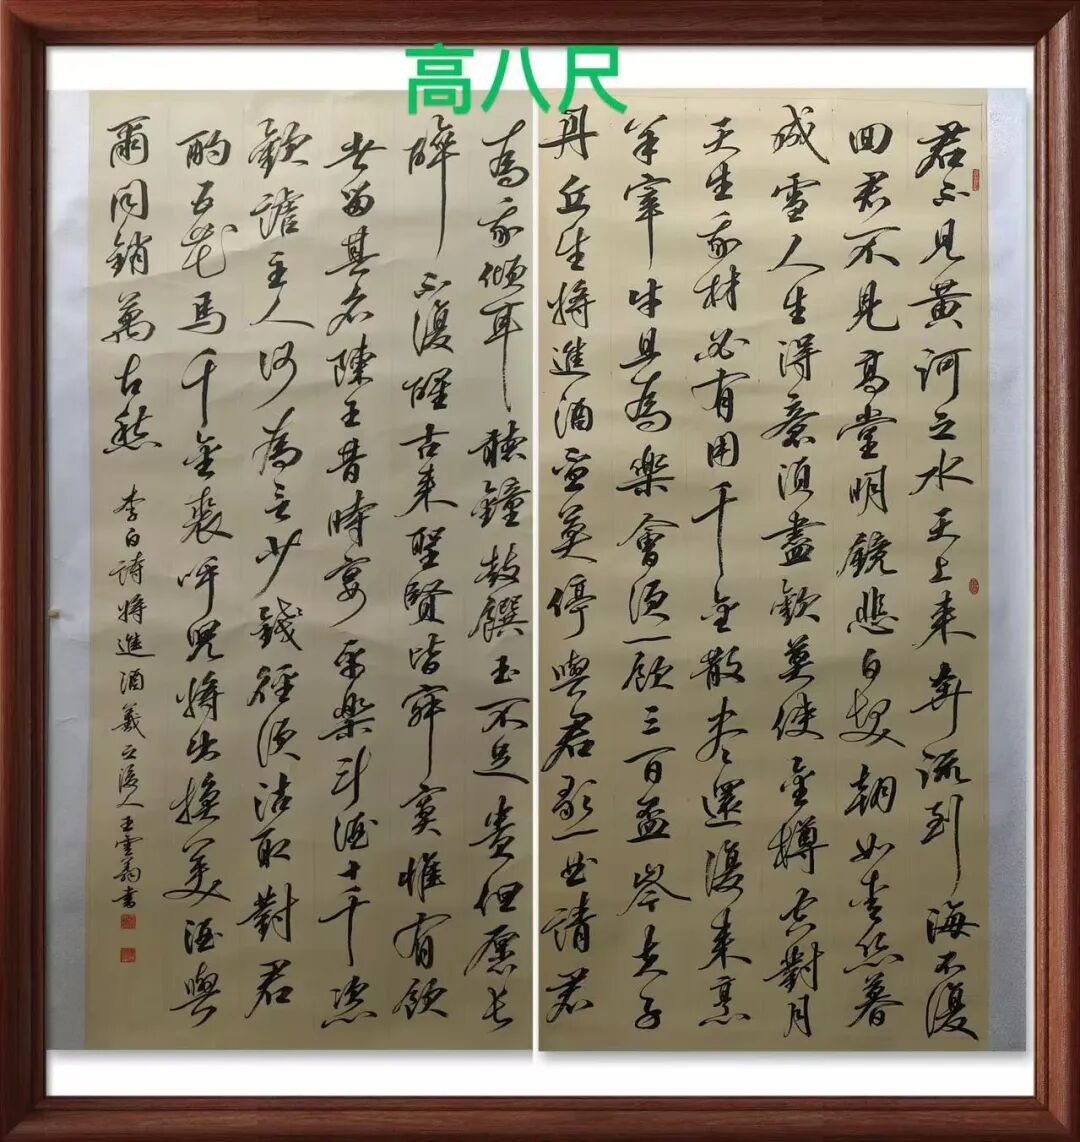 高八尺
君不見黃河之水天上來奔流到海不復
回君不見高堂明鏡悲白髮朝如青絲暮
成雪人生得意須盡歡莫使金樽空對月
天生我材必有用千金散盡還復來烹
羊宰牛且為樂會須一飲三百盃岑夫子
丹丘生將進酒盃莫停與君歌一曲請君
為我傾耳聽鐘鼓饌玉不足貴但願長
醉不復醒古來聖賢皆寂寞惟有飲
者留其名陳王昔時宴平樂斗酒十千恣
歡謔主人何為言少錢徑須沽取對君
酌五花馬千金裘呼兒將出換美酒與
爾同銷萬古愁
李白詩將進酒羲之後人王雲書